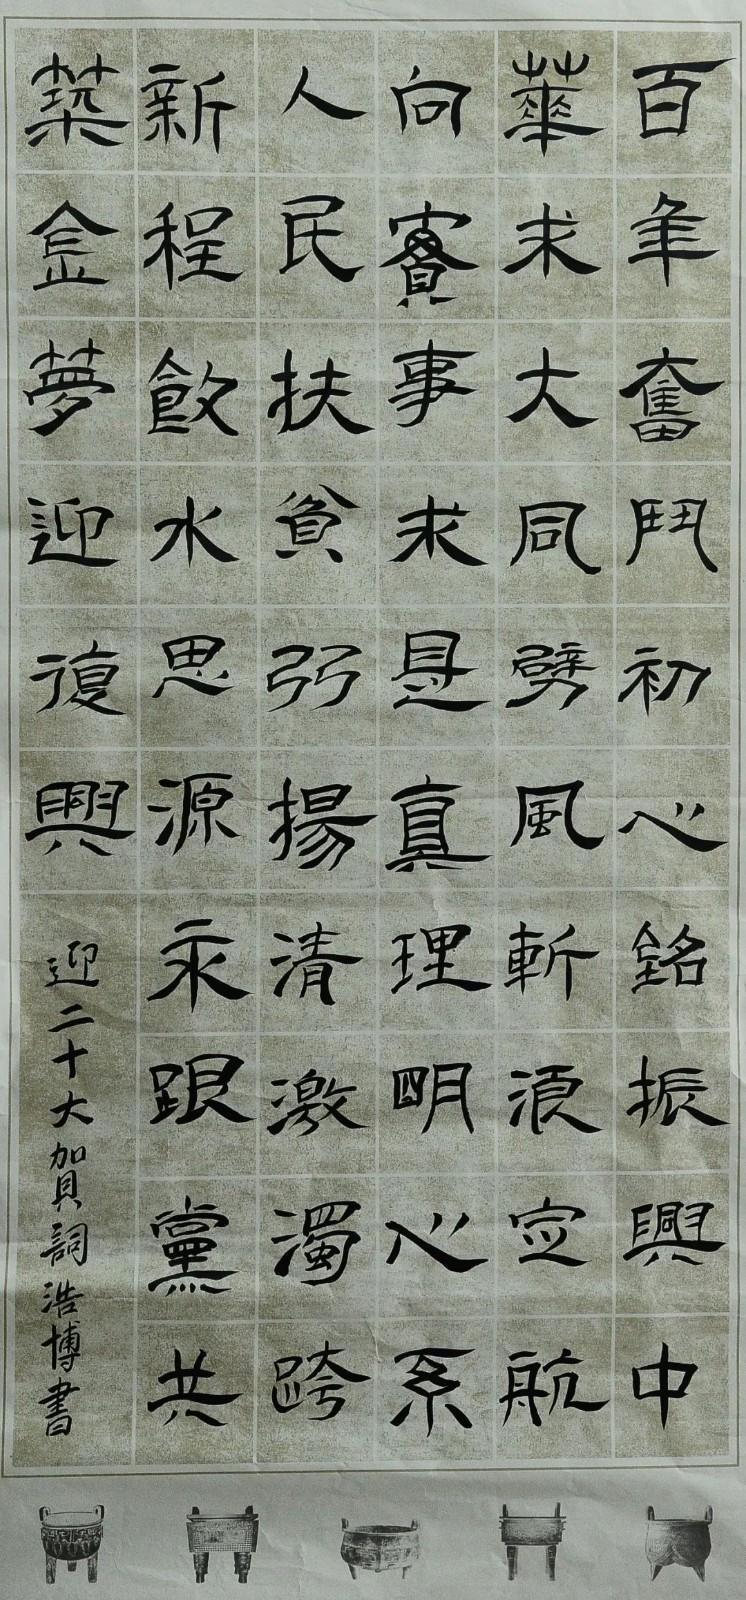 百年奮鬥初心銘振興中
華求大同劈風斬浪定航
向實事求是真理明心系
人民扶貧弱揚清激濁跨
新程飲水思源永跟黨共
築金夢迎復興
迎二十大賀詞浩博書